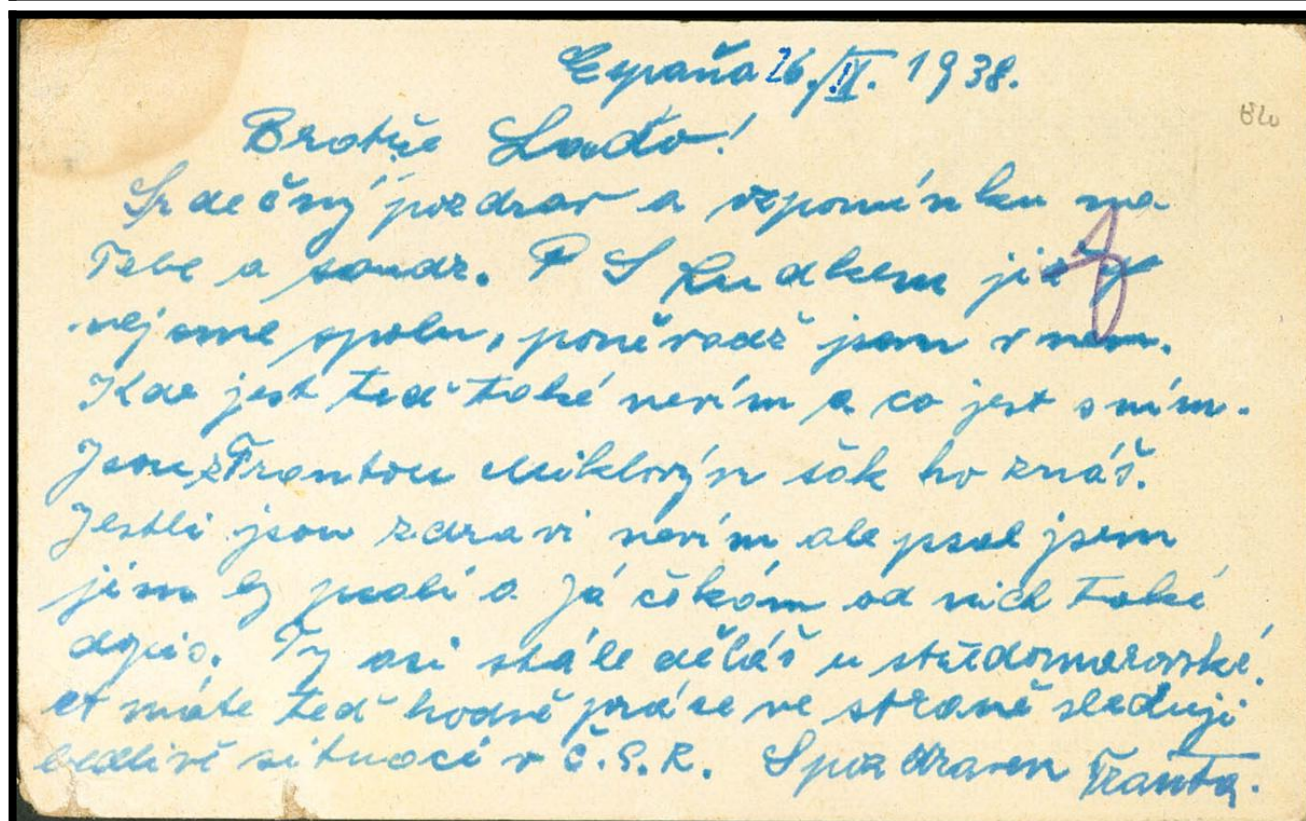 España 26./II. 1938.
Bratře Laďo!
Srdečný pozdrav a vzpomínku na
Tebe a soudr. S Ludkem již
nejsme spolu, poněvadž jsem v nem.
Kde jest teď také nevím a co jest s ním.
Jsou z Frantou sák ho znáš.
Jestli jsou zdravi nevím ale psal jsem
jim by psali a Já čekám od nich také
dopis. Ty asi stále děláš u středomoravské.
et máte teď hodně práce ve straně sleduji
bedlivě situaci v Č.S.R. S pozdravem Franta.